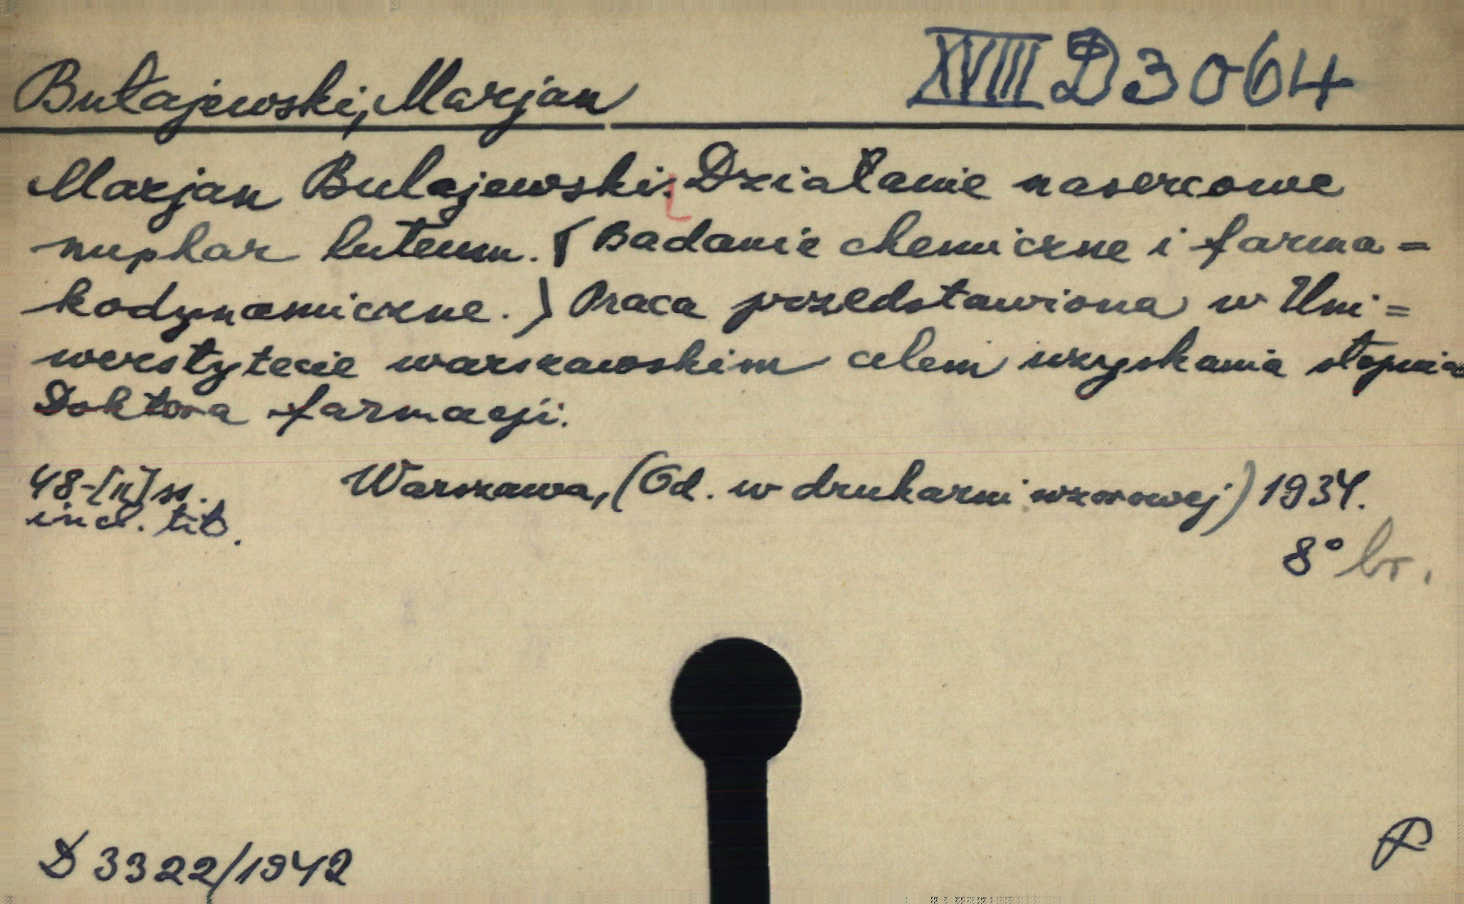 Bułajewski, Marjan
XVIII D 3064
Marjan Bułajewski: Działanie nasercowe
nuphar luteum. (Badanie chemiczne i farma=
kodynamiczne.) Praca przedstawiona w Uni=
werstytecie warszawskim celem uzyskania stopnia
Doktora farmacji.
48-[II] ss. Warszawa, (Od. w drukarni wzorowej) 1934.
incl. tit.
8° br.
D 3322/1942